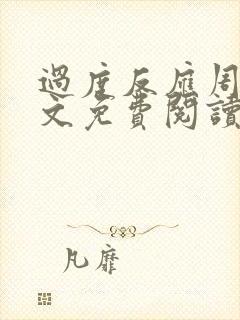 過度反應周
文免費閱讀
凡靡